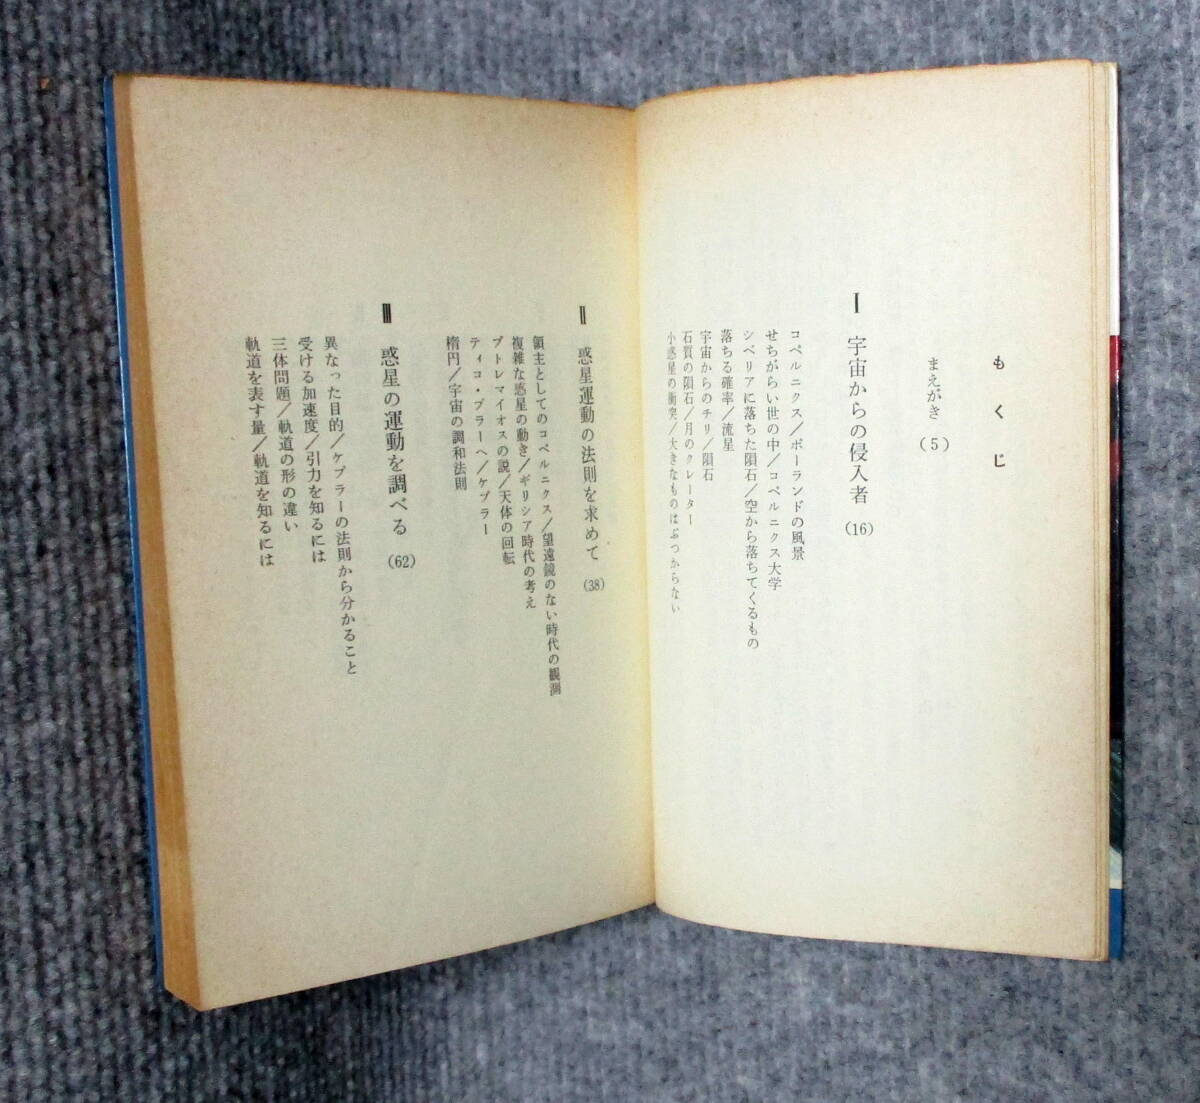 もくじ
まえがき (5)
Ⅰ 宇宙からの侵入者 (16)
コペルニクス/ポーランドの風景
せちがらい世の中/コペルニクス大学
シベリアに落ちた隕石/空から落ちてくるもの
落ちる確率/流星
宇宙からのチリ/隕石
石質の隕石/月のクレーター
小惑星の衝突/大きなものはぶつからない
Ⅱ 惑星運動の法則を求めて (38)
領主としてのコペルニクス/望遠鏡のない時代の観測
複雑な惑星の動き/ギリシア時代の考え
プトレマイオスの説/天体の回転
ティコ・ブラーヘ/ケプラー
楕円/宇宙の調和法則
Ⅲ 惑星の運動を調べる (62)
異なった目的/ケプラーの法則から分かること
受ける加速度/引力を知るには
三体問題/軌道の形の違い
軌道を表す量/軌道を知るには